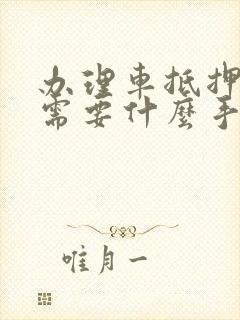 办理車抵押
需要什麼手
唯月一